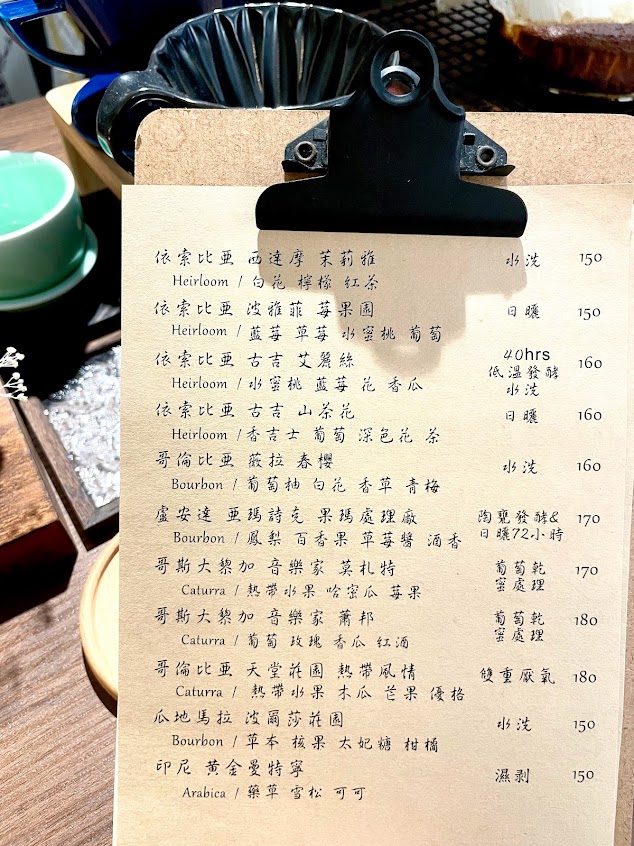 依索比亞 西達摩 茉莉雅 水洗 150
Heirloom / 白花 檸檬 紅茶
依索比亞 波雅菲 莓果園 日曬 150
Heirloom / 藍莓 草莓 水蜜桃 葡萄
依索比亞 古吉 艾麗絲 40hrs 低溫發酵 水洗 160
Heirloom / 水蜜桃 藍莓 花 香瓜
依索比亞 古吉 山茶花 日曬 160
Heirloom / 香吉士 葡萄 深色花 茶
哥倫比亞 薇拉 春櫻 水洗 160
Bourbon / 葡萄柚 白花 香草 青梅
盧安達 亞瑪詩克 果瑪處理廠 陶甕發酵& 日曬72小時 170
Bourbon / 鳳梨 百香果 草莓醬 酒香
哥斯大黎加 音樂家 莫札特 葡萄乾 蜜處理 170
Caturra / 熱帶水果 哈密瓜 莓果
哥斯大黎加 音樂家 蕭邦 葡萄乾 蜜處理 180
Caturra / 葡萄 玫瑰 香瓜 紅酒
哥倫比亞 天堂莊園 熱帶風情 雙重厭氧 180
Caturra / 熱帶水果 木瓜 芒果 優格
瓜地馬拉 波爾莎莊園 水洗 150
Bourbon / 草本 核果 太妃糖 柑橘
印尼 黃金曼特寧 濕剝 150
Arabica / 藥草 雪松 可可